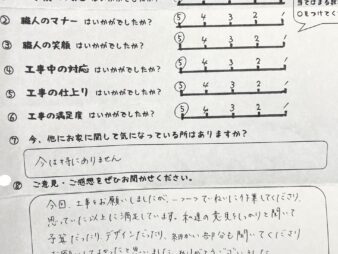 当てはまる数
○をつけてく
② 職人のマナー はいかがでしたか? 5 4 3 2 1
③ 職人の笑顔 はいかがでしたか? 5 4 3 2 1
④ 工事中の対応 はいかがでしたか? 5 4 3 2 1
⑤ 工事の仕上り はいかがでしたか? 5 4 3 2 1
⑥ 工事の満足度 はいかがでしたか? 5 4 3 2 1
⑦ 今、他にお家に関して気になっている所はありますか?
今は特にありません
⑧ ご意見・ご感想をぜひお聞かせください。
今回、工事をお願いしましたが、一つ一つていねいに作業してくださり、
思っていた以上に満足しています。私達の意見をしっかりと聞いて
予算だったり、デザインだったり、細かい部分も聞いてくださり